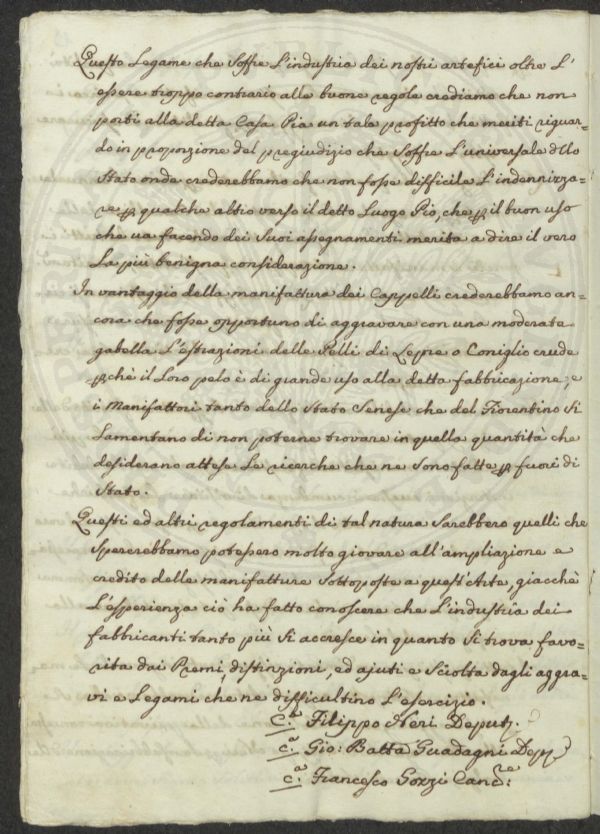 Questo Legame che soffre L'industria dei nostri artefici oltre L'
essere troppo contrario alle buone regole crediamo che non
porti alla detta Casa Pia un tale profitto che meriti riguar=
do in proporzione del pregiudizio che soffre L'universale dello
Stato onde crederebbamo che non fosse difficile L'indennizza=
re p qualche altro verso il detto Luogo Pio, che p il buon uso
che va facendo dei suoi assegnamenti merita a dire il vero
La più benigna considerazione.
In vantaggio della manifattura dei Cappelli crederebbamo an=
cora che fosse opportuno di aggravare con una moderata
gabella L'estrazioni delle Pelli di Lepre o Coniglio crude
pchè il Loro pelo è di grande uso alla detta fabbricazione, e
i Manifattori tanto dello Stato Senese che del Fiorentino si
Lamentano di non poterne trovare in quella quantità che
desiderano attese Le ricerche che ne sono fatte p fuori di
Stato.
Questi ed altri regolamenti di tal natura sarebbero quelli che
spererebbamo potessero molto giovare all'ampliazione e
credito delle manifatture sottoposte a quest'Arte, giacchè
L'esperienza ciò ha fatto conoscere che L'industria dei
fabbricanti tanto più si accresce in quanto si trova favo=
rita dai Premi, distinzioni, ed ajuti e sciolta dagli aggra=
vi e Legami che ne difficultino L'esercizio.
C.a Filippo Neri Deput.
C.a Gio: Batta Guadagni Dep.
C.a Francesco Gozzi Canc.re